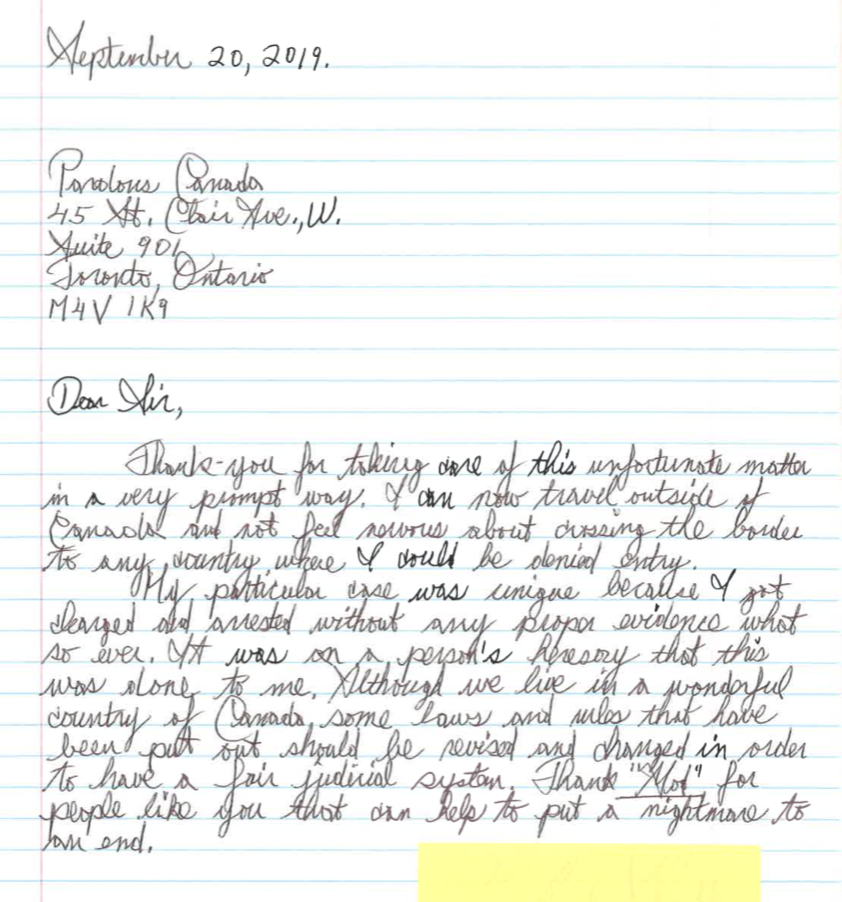 September 20, 2019.
Pardons Canada
45 St. Clair Ave., W.
Suite 901
Toronto, Ontario
M4V 1K9
Dear Sir,
Thank-you for taking care of this unfortunate matter
in a very prompt way. I can now travel outside of
Canada and not feel nervous about crossing the border
to any country where I could be denied entry.
My particular case was unique because I got
charged and arrested without any proper evidence what
so ever. It was on a person's heresay that this
was done to me. Although we live in a wonderful
country of Canada, some laws and rules that have
been put out should be revised and changed in order
to have a fair judicial system. Thank "God" for
people like you that can help to put a nightmare to
an end.